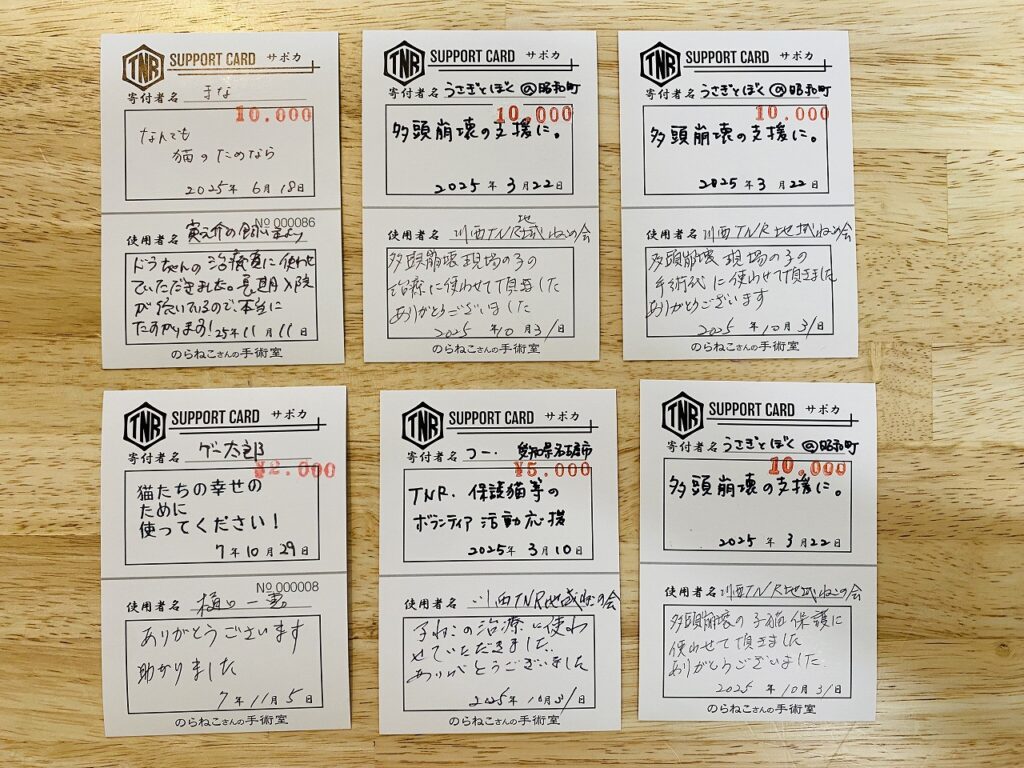 TNR SUPPORT CARD サポカ
寄付者名 まな
10.000
なんでも
猫のためなら
2025年 6月 18日
No 000086
使用者名 寅之介の飼い主より
ドラちゃんの治療費に使わせ
ていただきました。長期入院
が続いているので、本当に
たすかります! 25年 11月 11日
TNR SUPPORT CARD サポカ
寄付者名 うさぎとぼく @昭和町
10.000
多頭崩壊の支援に。
2025年 3月 22日
使用者名 川西TNR地域ねこの会
多頭崩壊現場の子の
治療に使わせて頂きました
ありがとうございます
2025年 10月 31日
のらねこさんの手術室
TNR SUPPORT CARD サポカ
寄付者名 うさぎとぼく @昭和町
10.000
多頭崩壊の支援に。
2025年 3月 22日
使用者名 川西TNR地域ねこの会
多頭崩壊現場の子の
手術代に使わせて頂きました
ありがとうございます
2025年 10月 31日
のらねこさんの手術室
TNR SUPPORT CARD サポカ
寄付者名 グー太郎
¥2.000
猫たちの幸せの
ために
使ってください!
7年 10月 29日
No 000008
使用者名 樋口一恵
ありがとうございます
助かりました
7年 11月 5日
のらねこさんの手術室
TNR SUPPORT CARD サポカ
寄付者名 つー. 愛知県名古屋市
¥5.000
TNR. 保護猫等の
ボランティア活動応援
2025年 3月 10日
使用者名 川西TNR地域ねこの会
子ねこの治療に使わ
せていただきました.
ありがとうございました
2025年 10月 31日
のらねこさんの手術室
TNR SUPPORT CARD サポカ
寄付者名 うさぎとぼく @昭和町
10.000
多頭崩壊の支援に。
2025年 3月 22日
使用者名 川西TNR地域ねこの会
多頭崩壊の子猫保護に
使わせて頂きました
ありがとうございました.
2025年 10月 31日
のらねこさんの手術室